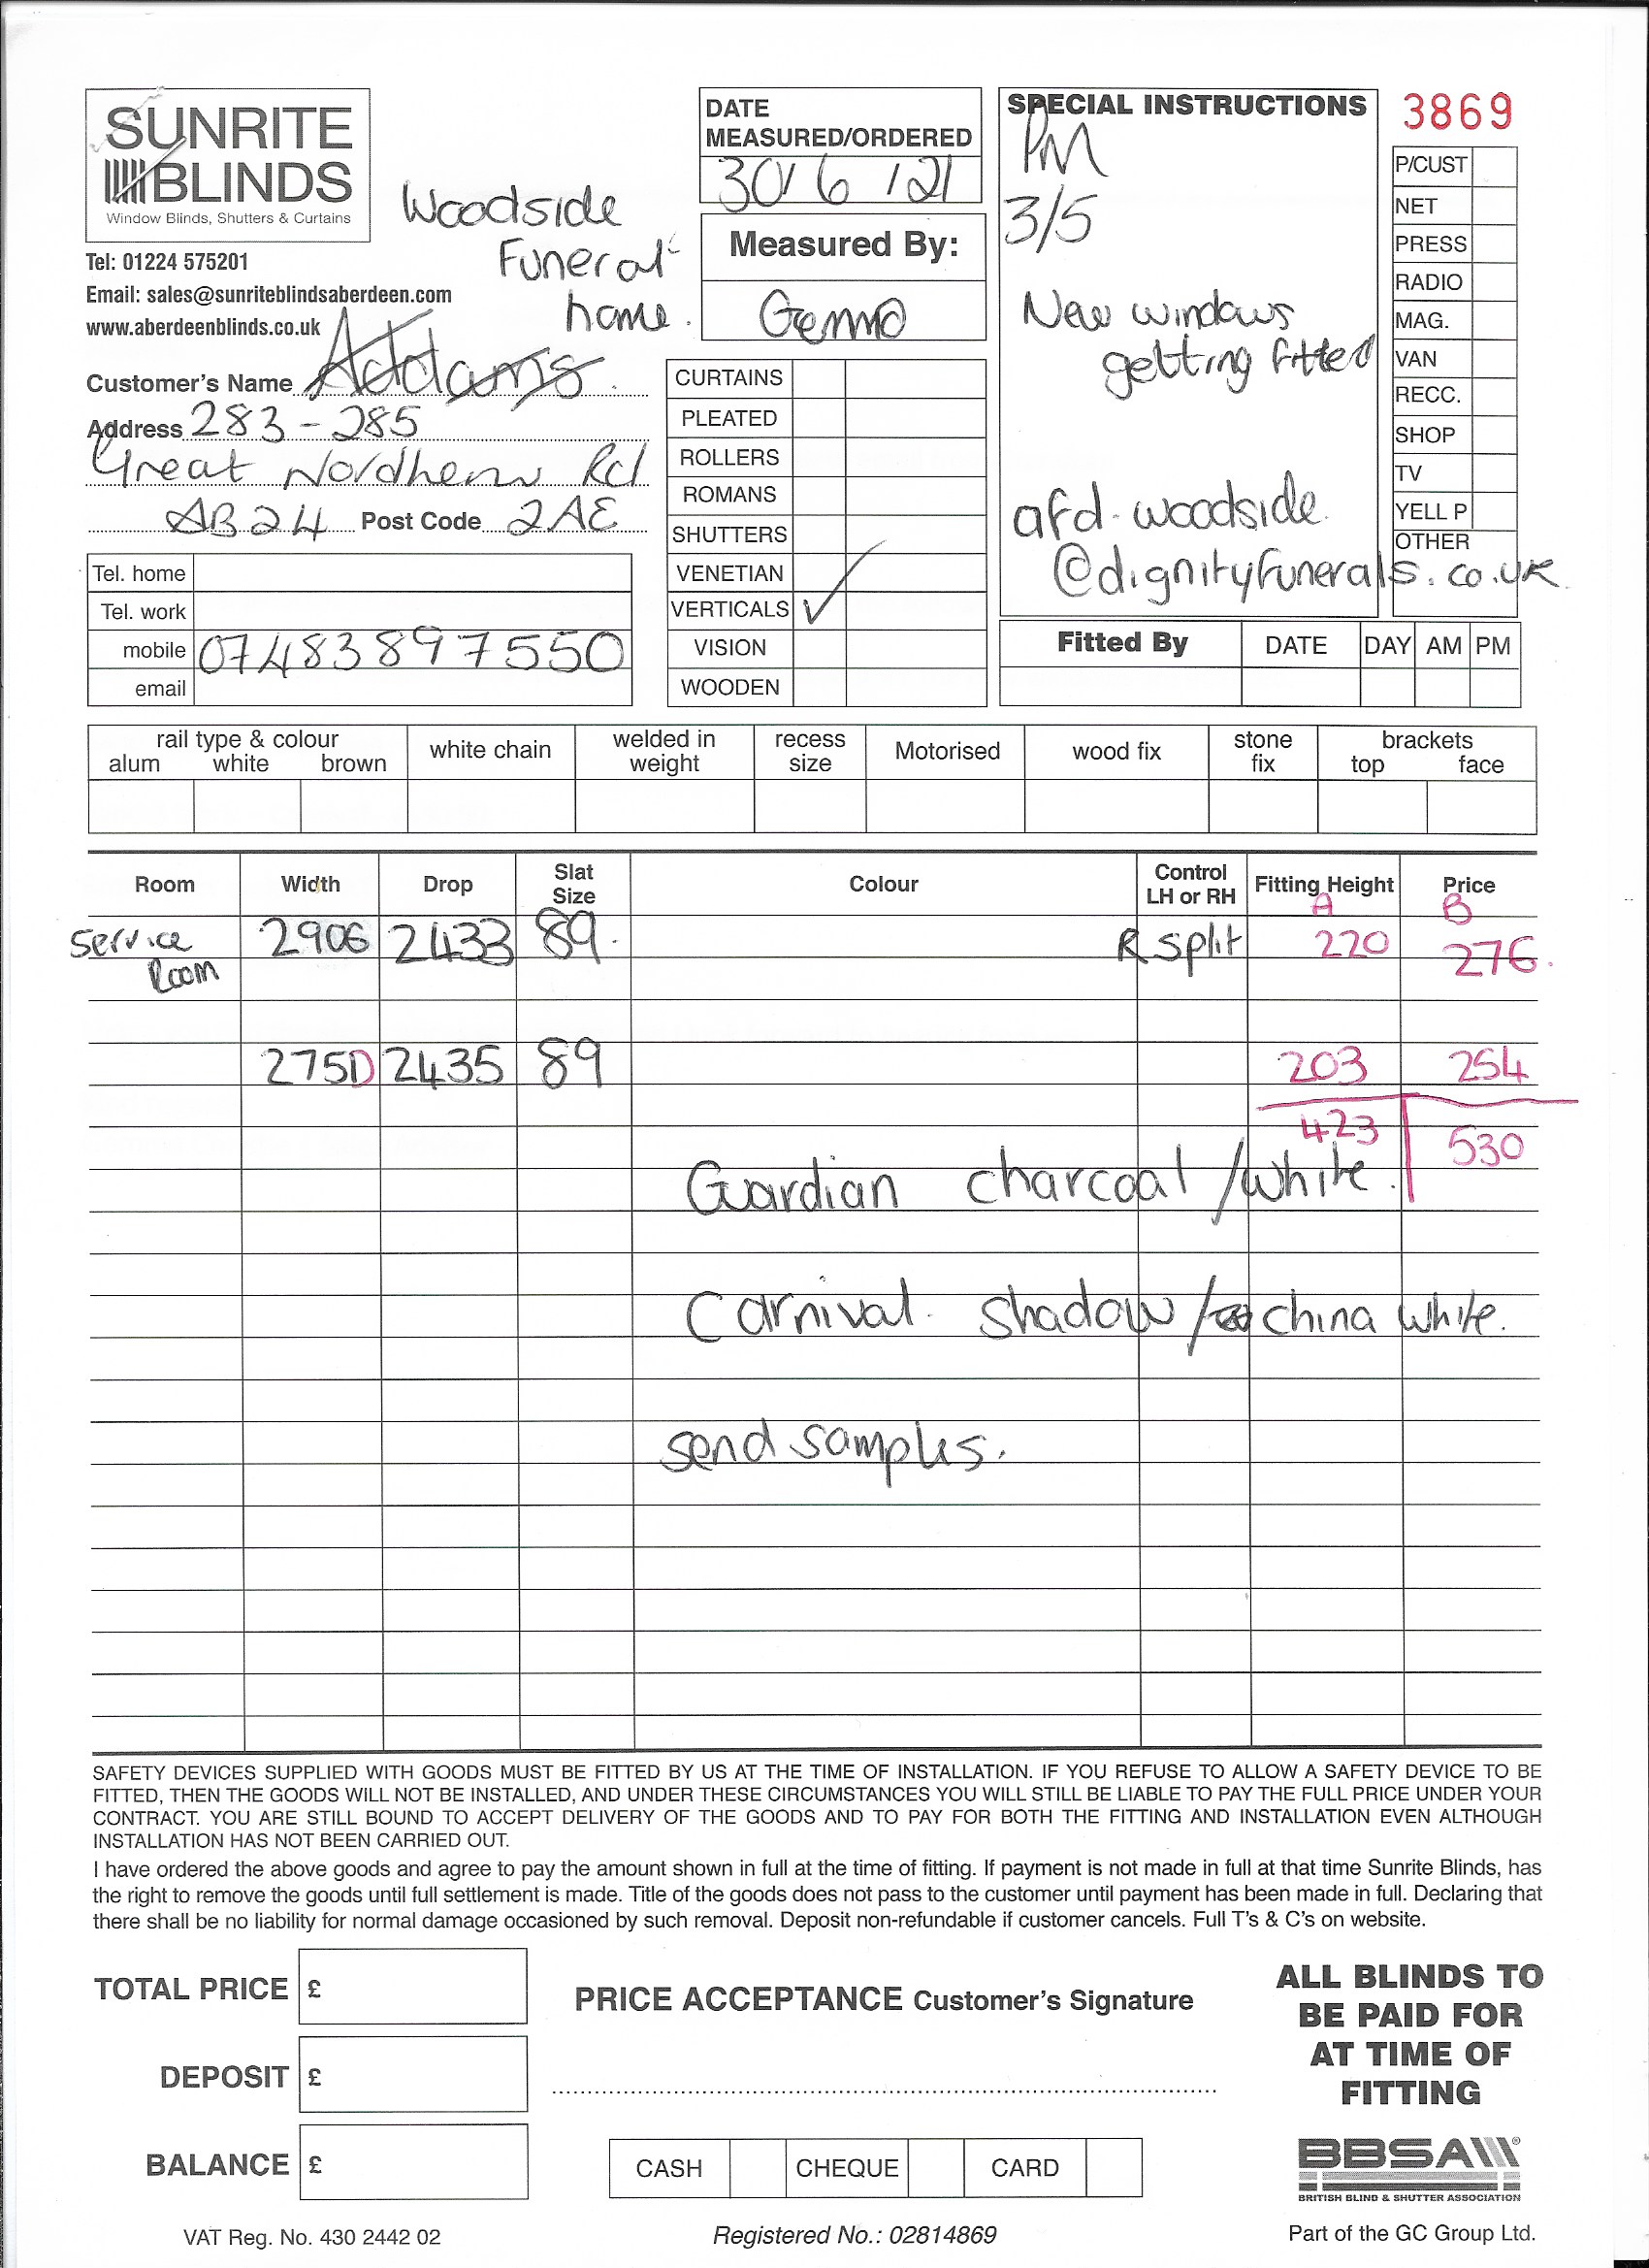 SUNRITE
BLINDS
Window Blinds, Shutters & Curtains
Tel: 01224 575201
Email: sales@sunriteblindsaberdeen.com
www.aberdeenblinds.co.uk
Woodside
Funeral
home.
DATE
MEASURED/ORDERED
30/6/21
Measured By:
Gemma
SPECIAL INSTRUCTIONS
PM
3/5
New windows
getting fitted
afd-woodside
@dignityfunerals.co.uk
3869
P/CUST
NET
PRESS
RADIO
MAG.
VAN
RECC.
SHOP
TV
YELL P
OTHER
Customer's Name Addams
Address 283-285
Great Northern Rd
AB24 Post Code 2AE
Tel. home
Tel. work
mobile 07483897550
email
CURTAINS
PLEATED
ROLLERS
ROMANS
SHUTTERS
VENETIAN
VERTICALS ✓
VISION
WOODEN
Fitted By DATE DAY AM PM
rail type & colour
alum white brown
white chain
welded in
weight
recess
size
Motorised
wood fix
stone
fix
brackets
top face
Room Width Drop Slat Size Colour Control LH or RH Fitting Height Price
A B
Service 2906 2433 89. R Split 220 276.
Room
2750 2435 89 203 254
423 530
Guardian charcoal/white.
Carnival. shadow/china white.
send samples.
SAFETY DEVICES SUPPLIED WITH GOODS MUST BE FITTED BY US AT THE TIME OF INSTALLATION. IF YOU REFUSE TO ALLOW A SAFETY DEVICE TO BE
FITTED, THEN THE GOODS WILL NOT BE INSTALLED, AND UNDER THESE CIRCUMSTANCES YOU WILL STILL BE LIABLE TO PAY THE FULL PRICE UNDER YOUR
CONTRACT. YOU ARE STILL BOUND TO ACCEPT DELIVERY OF THE GOODS AND TO PAY FOR BOTH THE FITTING AND INSTALLATION EVEN ALTHOUGH
INSTALLATION HAS NOT BEEN CARRIED OUT.
I have ordered the above goods and agree to pay the amount shown in full at the time of fitting. If payment is not made in full at that time Sunrite Blinds, has
the right to remove the goods until full settlement is made. Title of the goods does not pass to the customer until payment has been made in full. Declaring that
there shall be no liability for normal damage occasioned by such removal. Deposit non-refundable if customer cancels. Full T's & C's on website.
TOTAL PRICE £
DEPOSIT £
BALANCE £
PRICE ACCEPTANCE Customer's Signature
CASH CHEQUE CARD
ALL BLINDS TO
BE PAID FOR
AT TIME OF
FITTING
BBSA®
BRITISH BLIND & SHUTTER ASSOCIATION
VAT Reg. No. 430 2442 02
Registered No.: 02814869
Part of the GC Group Ltd.